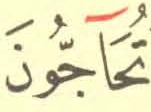 تُحَاۤجُّونَ